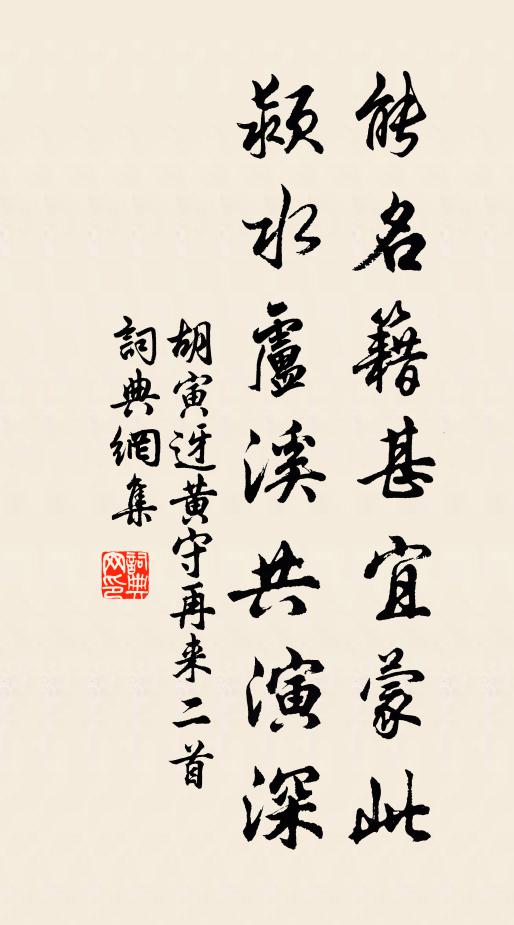 能名籍甚宜蒙此
潁水盧溪共演深
胡寅迓黃守再来二首
詞典網集
詞典網印